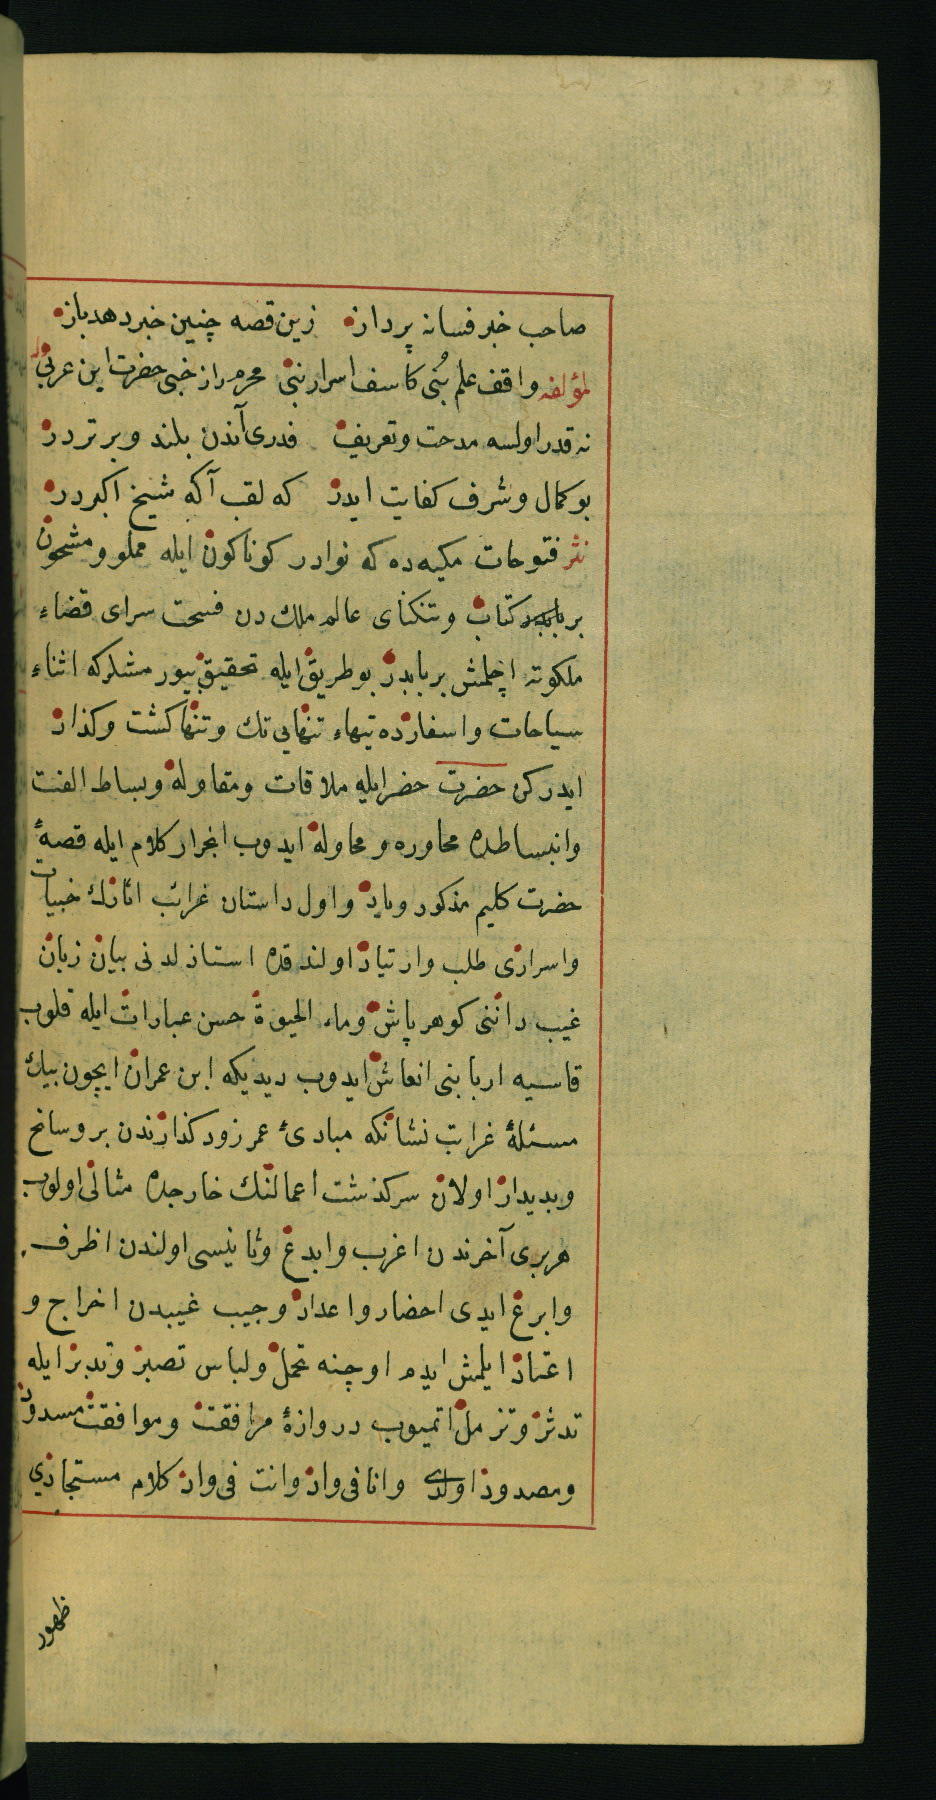 صاحب خبر فسانه پرداز زین قصه چنین خبر دهد باز
لمؤلفه واقف علم نبی کاشف اسرار نبی محرم راز خبی حضرت ابن عربی
نه قدر اولسه مدحت وتعریف قدری آندن بلند وبرتر در
بوکمال وشرف کفایت ایدر که لقب آکه شیخ اکبر در
نثر فتوحات مکیه ده که نوادر کوناکون ایله مملو ومشحون
بر کتاب وتنکنای عالم ملك دن فسحت سرای قضاء
ملکوته اچلمش بر بابدر بو طریق ایله تحقیق بیور مشلر که اثناء
سیاحات واسفارده تیهاء تنهایی تك وتنها کشت وکذار
ایدرکن حضرت خضر ایله ملاقات ومقاوله وبساط الفت
وانبساطده محاوره ومحاوله ایدوب انجرار کلام ایله قصهٔ
حضرت کلیم مذکور ویاد واول داستان غرائب اثارك خبیات
واسراری طلب وارتیاد اولندقده استاذ لدنی بیان زبان
غیب داننی کوهر پاش وماء الحیوة حسن عبارات ایله قلوب
قاسیه اربابنی انعاش ایدوب دیدیکه ابن عمران ایچون بیك
مسئلهٔ غرابت نشانکه مبادئ عمر زود کذارندن بر وسانح
وبدیدار اولان سرکذشت اعمالنك خارجده مثالی اولوب
هر بری آخرندن اغرب وابدع وثانیسی اولندن اظرف
وابرع ایدی احضار واعداد وجیب غیبدن اخراج و
اعتاد ایلمش ایدم اوچنه تحمل ولباس تصبر وتدبر ایله
تدثر وتزمل اتمیوب دروازهٔ مرافقت وموافقت مسدود
ومصدود اولدی وانا فی واد وانت فی واد کلام مستجادی
ظهور